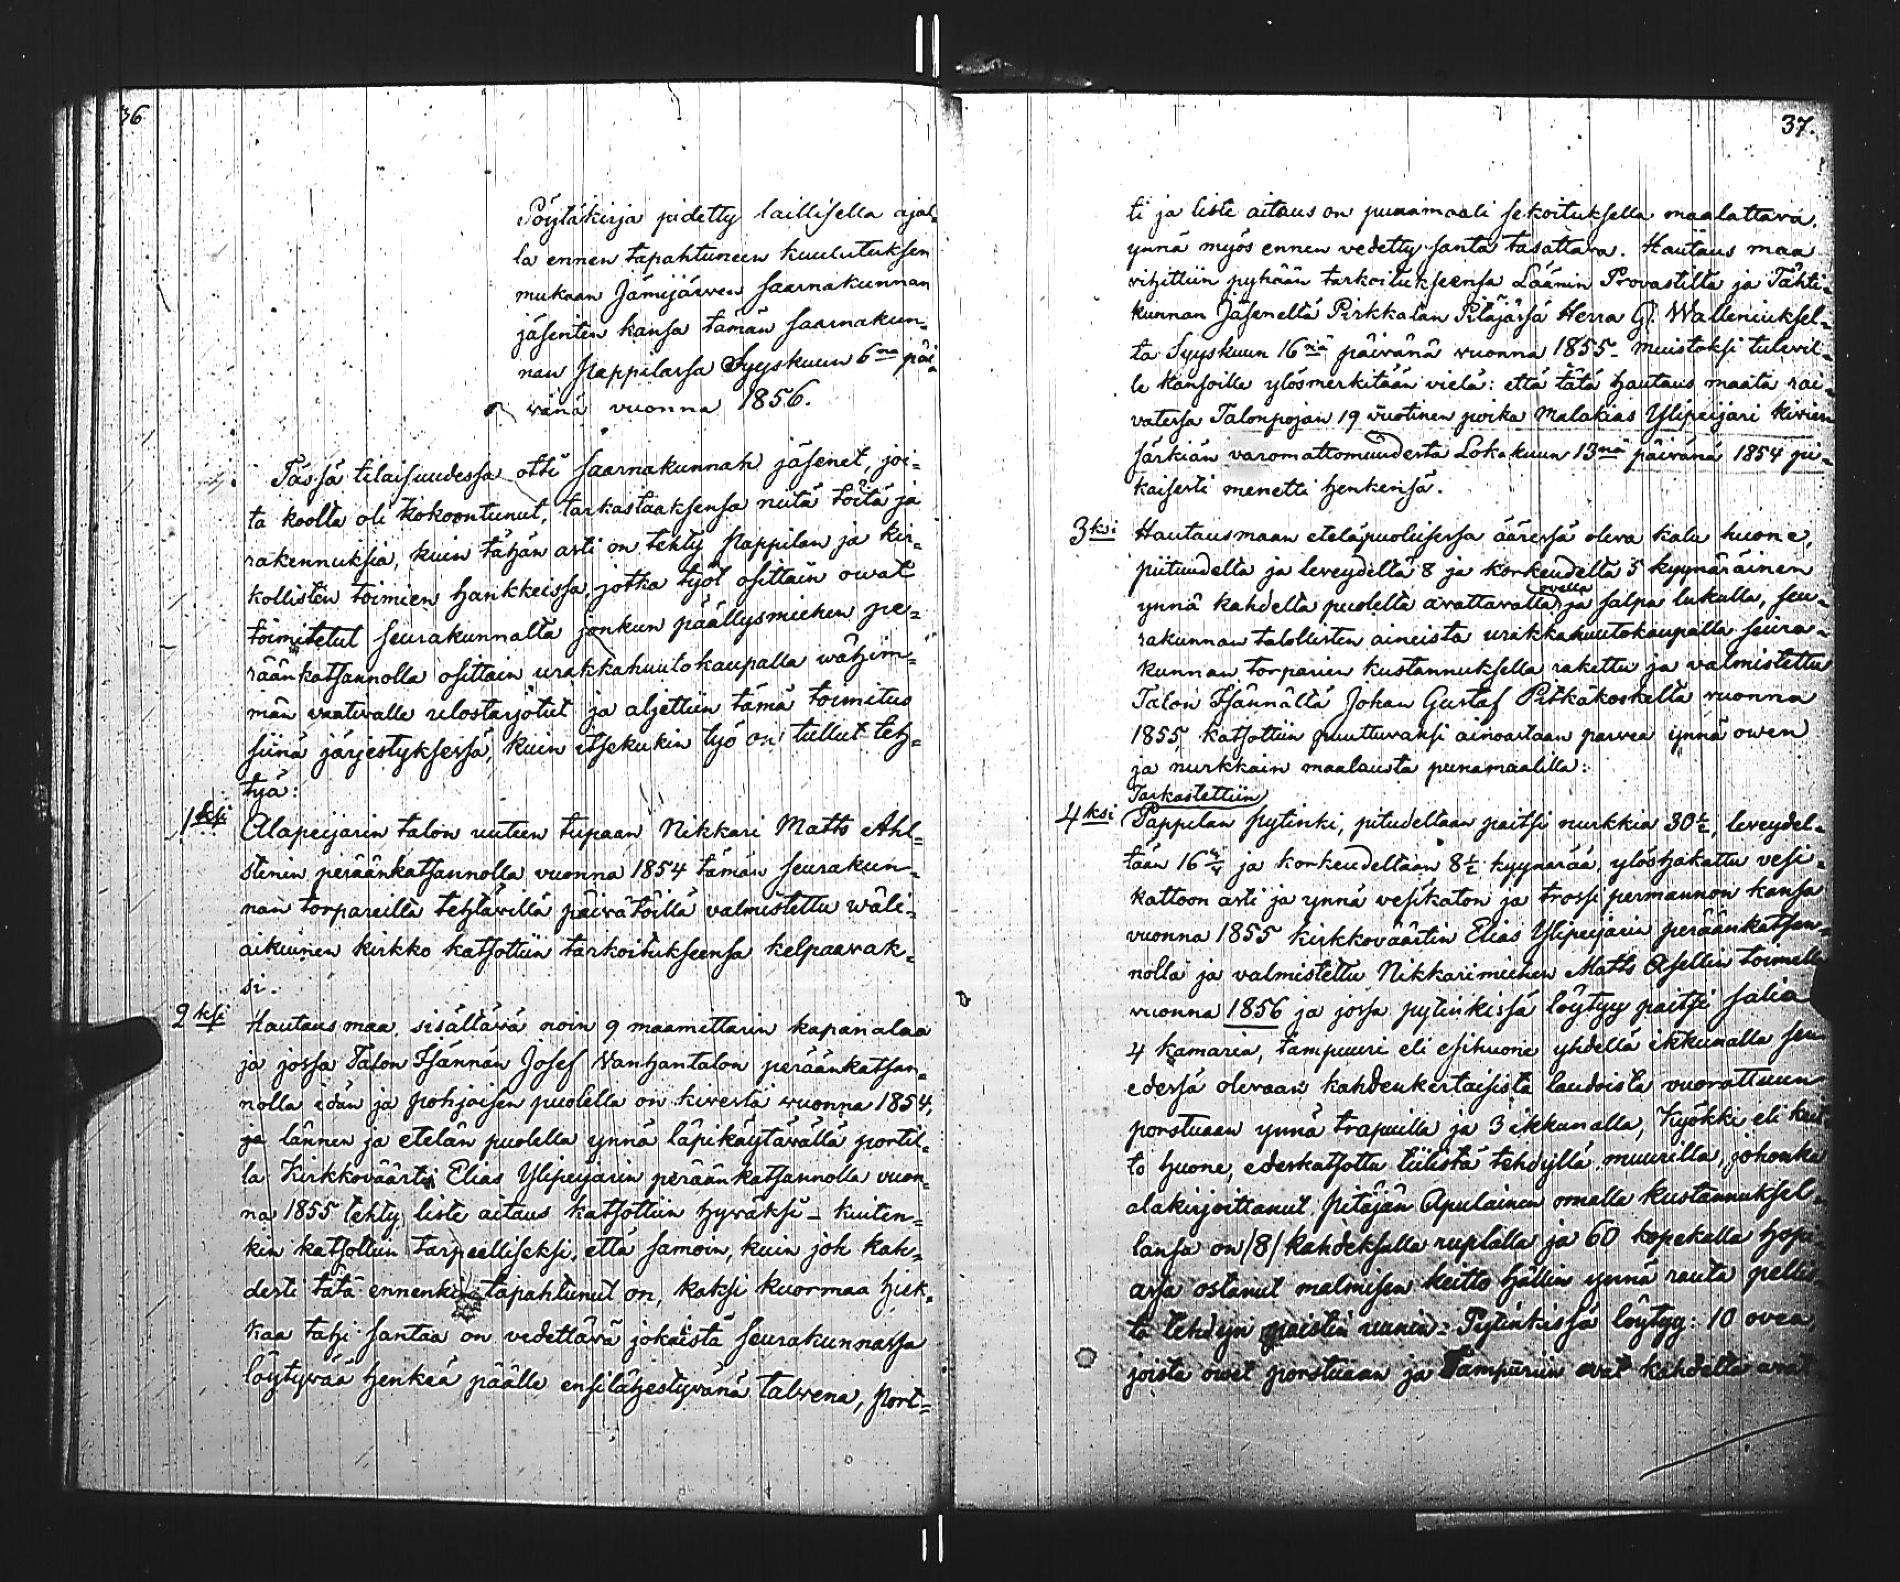 36
Pöytäkirja pidetty laillisella ajal=
la ennen tapahtuneen kuulutuksen
mukaan Jämijärwen Saarnakunnan
jäsenten kansa tämän saarnakun=
nan Pappilassa Syyskuun 6na päi=
vänä vuonna 1856.
Tässä tilaisuudessa otti Saarnakunnan jäsenet, joi=
ta koolla oli kokoontunut, tarkastaaksensa niitä töitä ja
rakennuksia, kuin tähän asti on tehty Pappilan ja kir=
kollisten toimien hankkeissa, jotka työt osittain owat
toimitetut seurakunnalta jonkun päällysmiehen pe=
räänkatsannolla osittain urakkahuutokaupalla wähim=
män vaativalle ulostarjotut ja aljettiin tämä toimitus
siinä järjestyksessä, kuin itsekukin työ on tullut teh=
tyä:
1ksi Alapeijarin talon uuteen tupaan Nikkari Matts Ahl=
stenin peräänkatsannolla vuonna 1854 tämän seurakun=
nan torpareilla tehtävillä päivätöillä valmistettu wäli=
aikuinen kirkko katsottiin tarkoitukseensa kelpaavak=
si.
2ksi Hautausmaa, sisältävä noin 9 maamittarin kapanalaa
ja jossa Talon Isännän Josef Vanhantalon peräänkatsan=
nolla idän ja pohjaisen puolella on kivestä vuonna 1854,
ja lännen ja etelän puolella ynnä läpikäytävällä portil=
la Kirkkoväärti Elias Ylipeijarin peräänkatsannolla vuon=
na 1855 tehty liste aitaus katsottiin hyväksi – kuiten=
kin katsottiin tarpeelliseksi, että samoin, kuin joh kah=
desti tätä ennenki tapahtunut on, kaksi kuormaa hiek=
kaa tahi santaa on vedettävä jokaista seurakunnassa
löytyvää henkeä päälle ensilähestyvänä talvena, port=
37.
ti ja liste aitaus on punamaali sekoituksella maalattava.
ynnä myös ennen vedetty santa tasattava. Hautaus maa
vihittiin pyhään tarkoitukseensa Läänin Provastilta ja Tähti=
kunnan Jäseneltä Pirkkalan Pitäjässä Herra G. Walleniuksel=
ta Syyskuun 16nä päivänä vuonna 1855 – muistoksi tulevil=
le kansoille ylösmerkitään vielä: että tätä hautaus maata rai=
vatessa Talonpojan 19 vuotinen poika Malakias Ylipeijari kivien
särkiän varomattomuudesta Lokakuun 13nä päivänä 1854 pii=
kaisesti menetti henkensä.
3ksi Hautausmaan eteläpuolisessa ääressä oleva kalu huone,
piituudelta ja leveydeltä 8 ja korkeudelta 5 kyynäräinen
ynnä kahdelta puolelta avattavalla ovella ja salpa lukulla, seu=
rakunnan talollisten aineista urakkahuutokaupalla seura=
kunnan torparien kustannuksella rakettu ja valmistettu
Talon Isännältä Johan Gustaf Pitkäkoskelta vuonna
1855, katsottiin puuttuvaksi ainoastaan parvea ynnä owen
ja nurkkain maalausta punamaalilla:
Tarkastettiin
4ksi Pappilan pytinki, pitudeltaan paitsi nurkkia 30 1/2, leveydel=
tään 16 ja korkeudeltaan 8 1/2 kyynärää, ylöshakattu vesi=
kattoon asti ja ynnä vesikaton ja trossi permannon kansa
vuonna 1855 kirkkoväärtin Elias Ylipeijarin peräänkatsan=
nolla ja valmistettu Nikkarimiehen Matts Asellin toimella
vuonna 1856 ja jossa pytinkissä löytyy paitsi Salia
4 kamaria, tampuuri eli esihuone yhdellä ikkunalla sen
edessä olevaan kahdenkertaisista laudoista vuorattuun
porstuaan ynnä trapuilla ja 3 ikkunalla, Kyökki eli keit=
to huone, edeskatsottu tiilistä tehdyllä muurilla, johonka
alakirjoittanut Pitäjän Apulainen omalla kustannuksel=
lansa on /8/ kahdeksalla ruplalla ja 60 kopekalla hope=
assa ostanut malmisen keitto hällin ynnä rauta pellis=
tä tehdyn paistin uunin: Pytinkissä löytyy: 10 ovea,
joista owet porstuaan ja Tampuriin ovat kahdelta avat